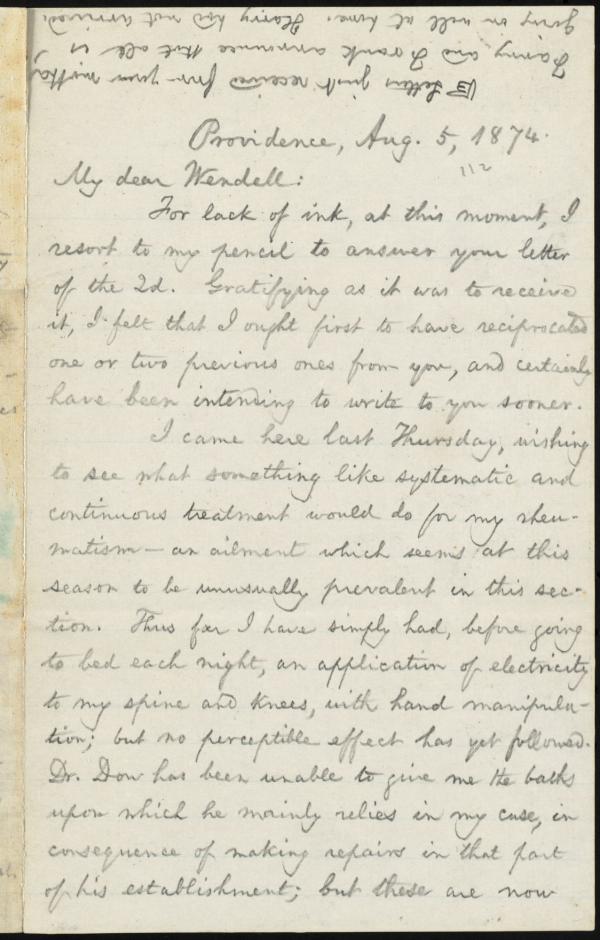 Letters just received from your mother,
Fanny and Frank announce that all is
going on well at home. Harry had not arrived.
Providence, Aug. 5, 1874.
112
My dear Wendell:
For lack of ink, at this moment, I
resort to my pencil to answer your letter
of the 2d. Gratifying as it was to receive
it, I felt that I ought first to have reciprocated
one or two previous ones from you, and certainly
have been intending to write to you sooner.
I came here last Thursday, wishing
to see what something like systematic and
continuous treatment would do for my rheu-
matism — an ailment which seems at this
season to be unusually prevalent in this sec-
tion. Thus far I have simply had, before going
to bed each night, an application of electricity
to my spine and knees, with hand manipula-
tion; but no perceptible effect has yet followed.
Dr. Dow has been unable to give me the baths
upon which he mainly relies in my case, in
consequence of making repairs in that part
of his establishment; but these are now